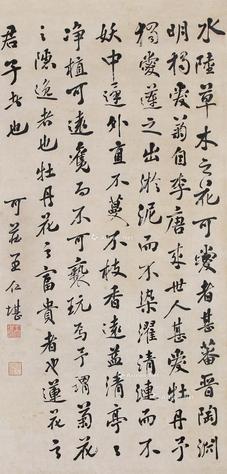 水陸草木之花可愛者甚蕃晉陶淵
明獨愛菊自李唐來世人甚愛牡丹予
獨愛蓮之出淤泥而不染濯清漣而不
妖中通外直不蔓不枝香遠益清亭〻
淨植可遠觀而不可褻玩焉予謂菊花
之隱逸者也牡丹花之富貴者也蓮花之
君子者也
可莊王仁堪